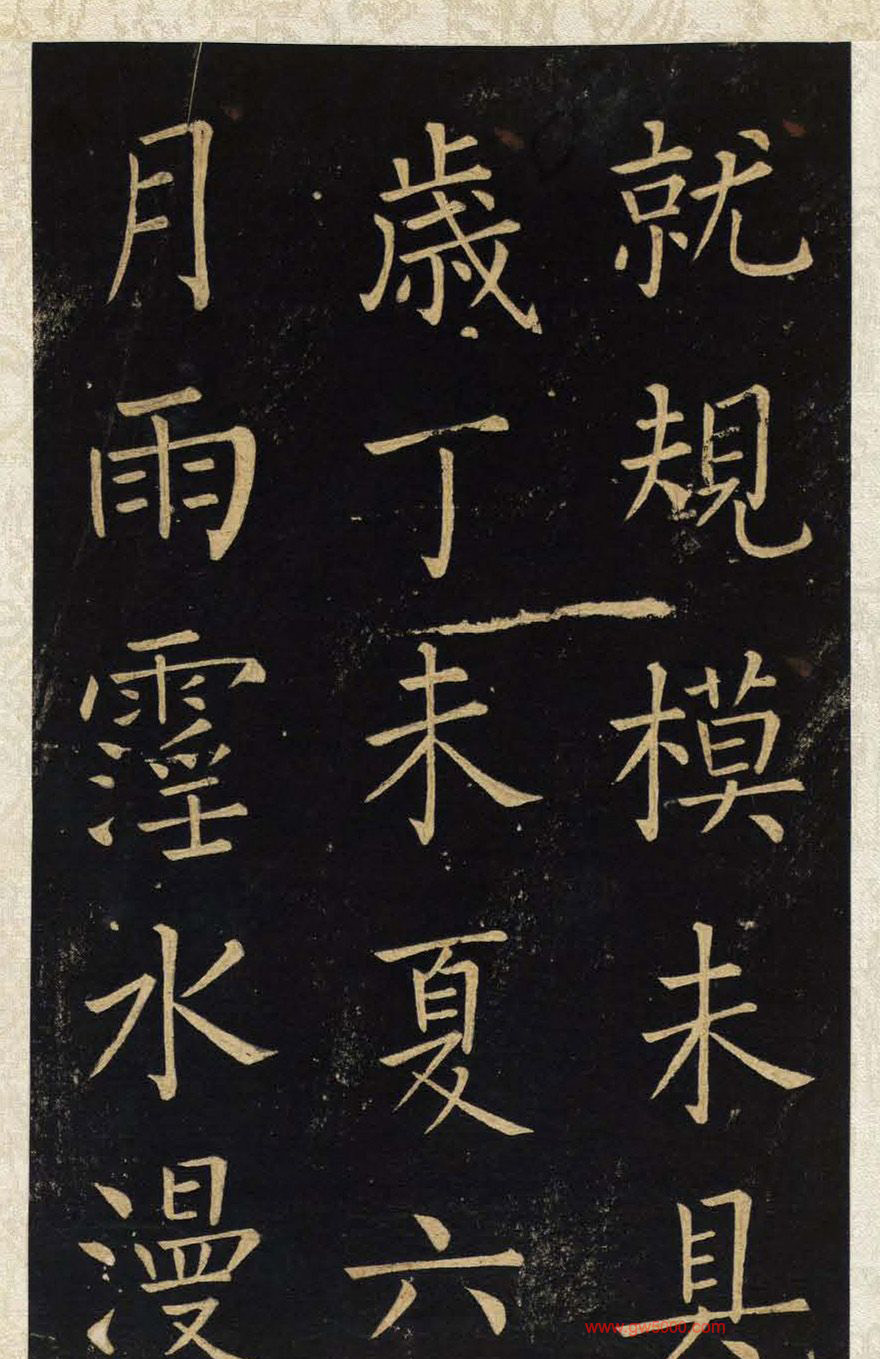 就規模未具
歳丁未夏六
月雨霪水漫
www.gwd600.com